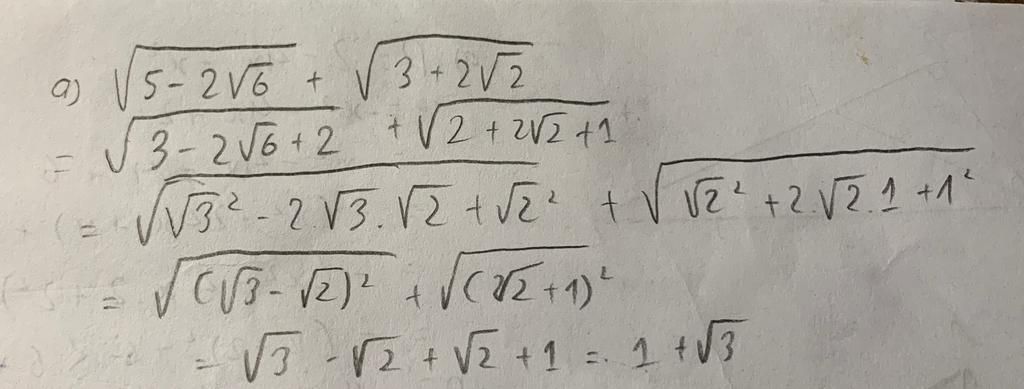 a) √(5 - 2√6) + √(3 + 2√2)
= √(3 - 2√6 + 2) + √(2 + 2√2 + 1)
= √(√3² - 2.√3.√2 + √2²) + √(√2² + 2.√2.1 + 1²)
= √((√3 - √2)²) + √((√2 + 1)²)
= √3 - √2 + √2 + 1 = 1 + √3